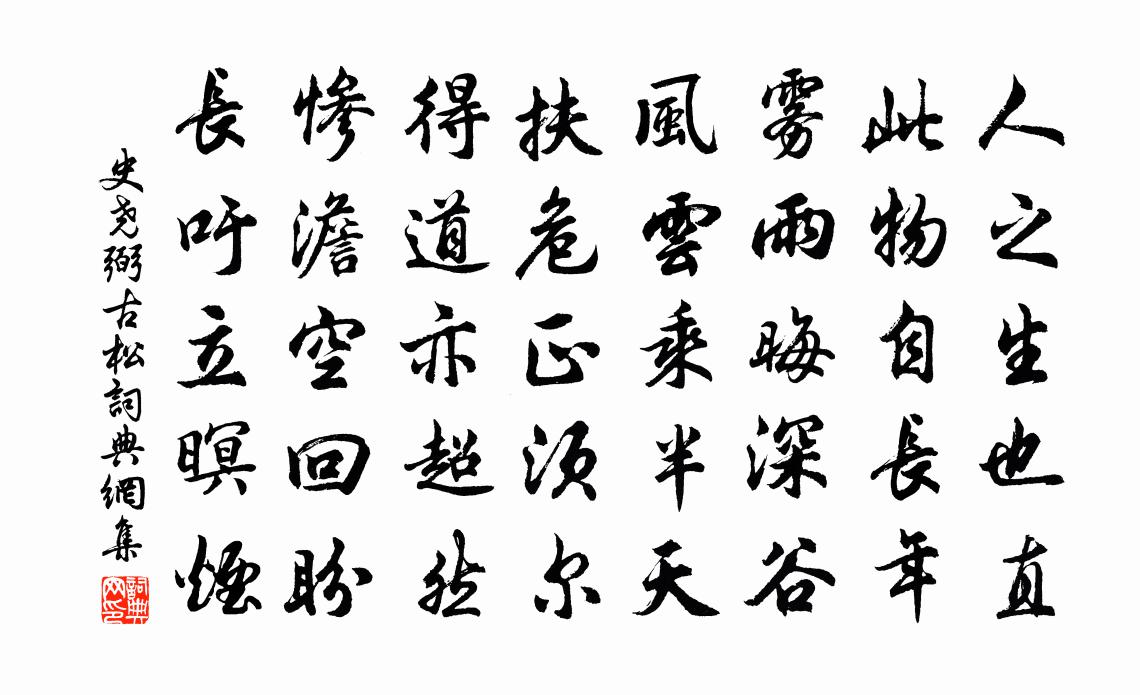 人之生也直
此物自長年
雾雨晦深谷
風雲乘半天
扶危正須尔
得道亦超然
慘澹空回盼
長吁立暝煙
史尧弼古松詞典網集
詞典网印